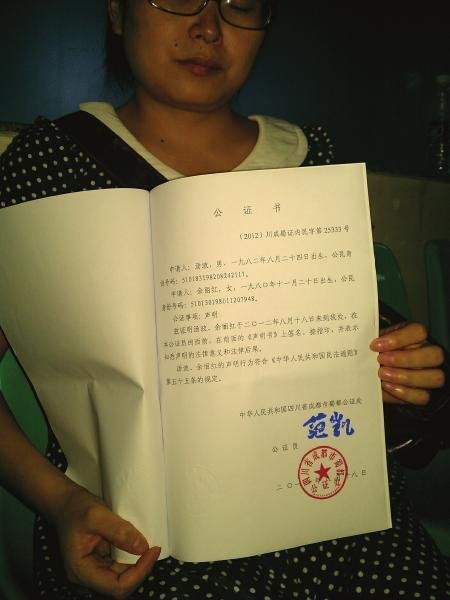 公 证 书
（2012）川成蜀证内民字第 25333 号
申请人：游波，男，一九八二年八月二十四日出生，公民
身份号码：510183198208242117。
申请人：余丽红，女，一九八〇年十一月二十日出生，公民
身份号码：510130198011207948。
公证事项：声明
兹证明游波、余丽红于二〇一二年八月十八日来到我处，在
本公证员的面前，在前面的《声明书》上签名、捺指印，并表示
知悉声明的法律意义和法律后果。
游波、余丽红的声明行为符合《中华人民共和国民法通则》
第五十五条的规定。
中华人民共和国四川省成都市蜀都公证处
公 证 员
范凯
二〇一 十八日